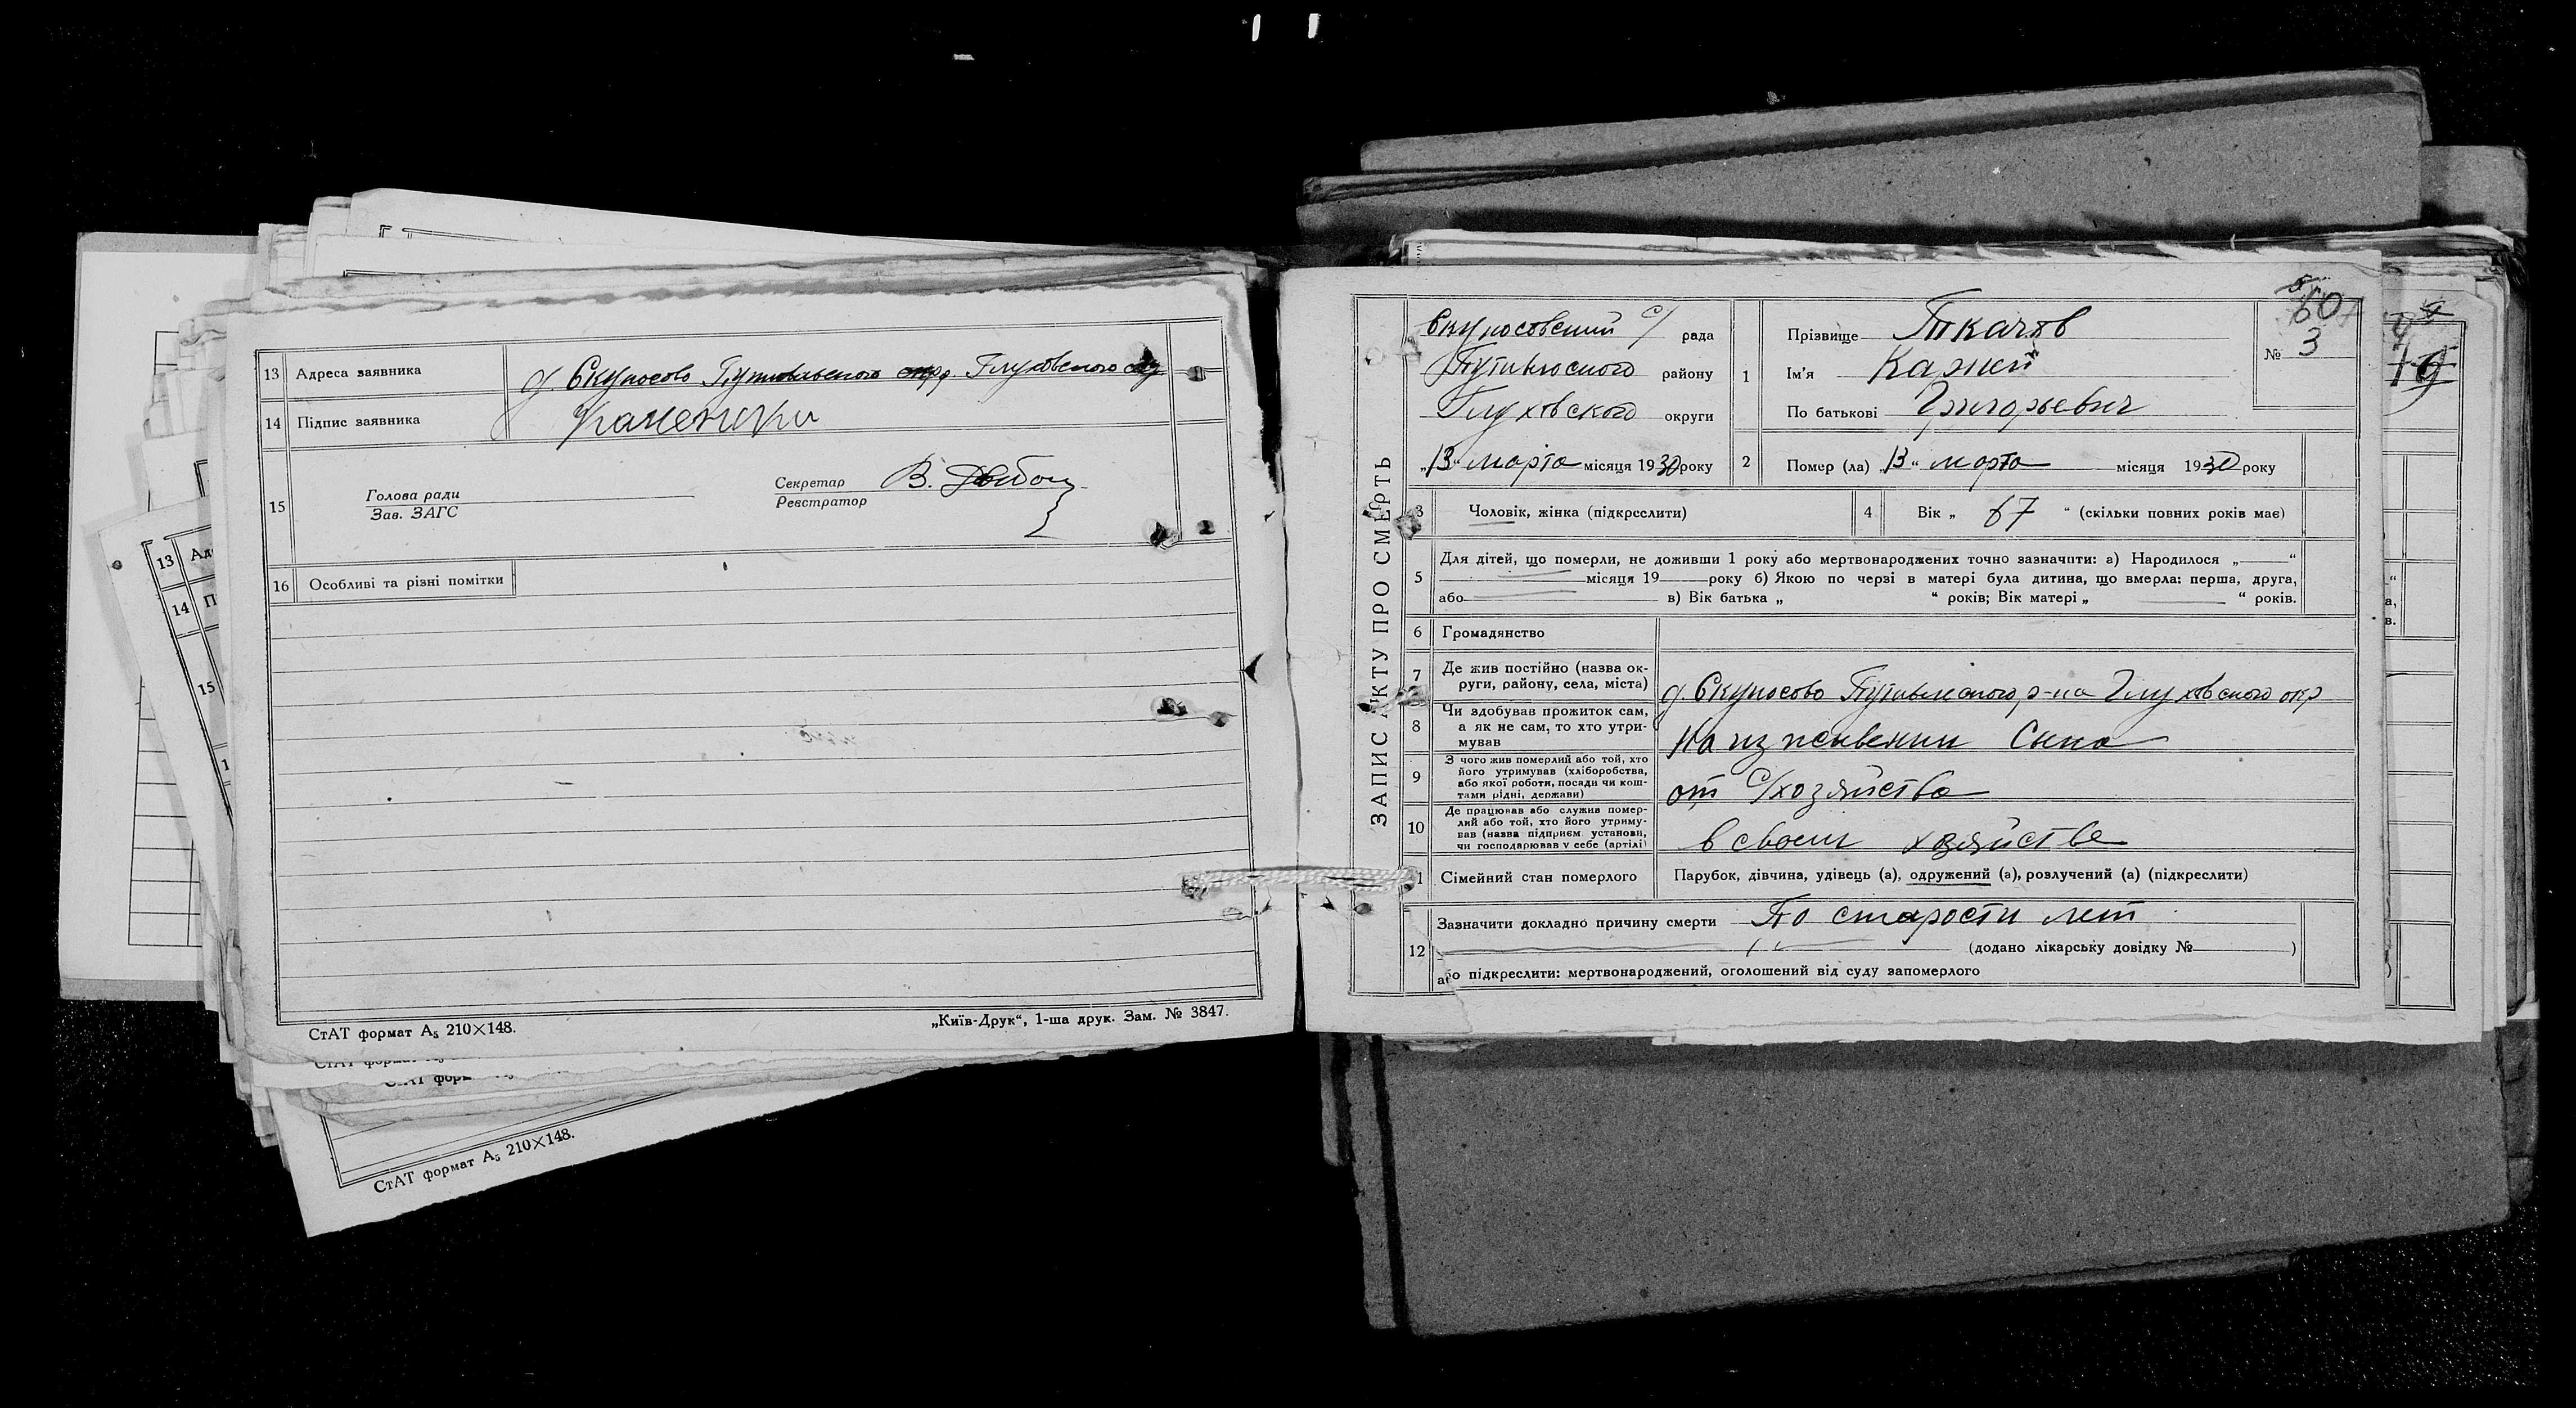 13 Адреса заявника д. Скуносово Путивльского Глуховского
14 Підпис заявника
15 Голова ради
Зав. ЗАГС
Секретар
Реєстратор
В.
16 Особливі та різні помітки
СтАТ формат А₅ 210×148.
„Київ-Друк“, 1-ша друк. Зам. № 3847.
СтАТ формат А₅ 210×148.
13
14
15
ЗАПИС АКТУ ПРО СМЕРТЬ
с/ рада
району
Глуховского округи
„13“ марта місяця 1930 року
1 Прізвище Ткачов
Ім'я
По батькові Григорьевич
60
№ 3
19
2 Помер (ла) „13“ марта місяця 1930 року
3 Чоловік, жінка (підкреслити)
4 Вік „ 67 “ (скільки повних років має)
5 Для дітей, що померли, не доживши 1 року або мертвонароджених точно зазначити: а) Народилося „ “
місяця 19 року б) Якою по черзі в матері була дитина, що вмерла: перша, друга,
або в) Вік батька „ “ років; Вік матері „ “ років.
6 Громадянство
7 Де жив постійно (назва ок-
руги, району, села, міста)
д. Скуносово Путивльского р-на Глуховского окр
8 Чи здобував прожиток сам,
а як не сам, то хто утри-
мував
На Сына
9 З чого жив померлий або той, хто
його утримував (хліборобства,
або якої роботи, посади чи кош-
тами рідні, держави)
от с/хозяйства
10 Де працював або служив помер-
лий або той, хто його утриму-
вав (назва підприєм. установи,
чи господарював у себе (артілі)
в своем хозяйстве
11 Сімейний стан померлого Парубок, дівчина, удівець (а), одружений (а), розлучений (а) (підкреслити)
12 Зазначити докладно причину смерти По старости лет
(додано лікарську довідку № )
або підкреслити: мертвонароджений, оголошений від суду запомерлого